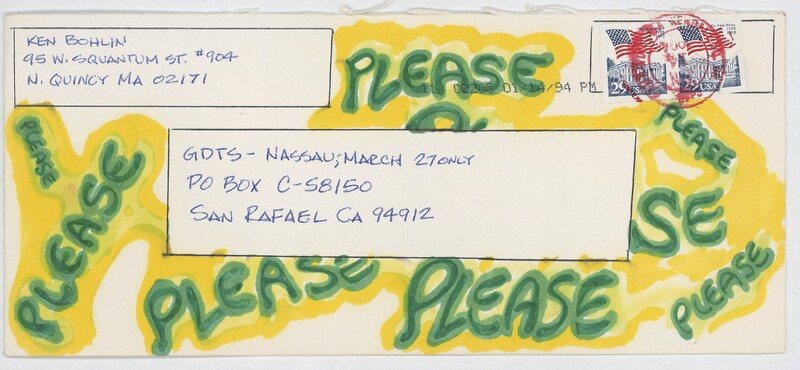 KEN BOHLIN
95 W. SQUANTUM ST. #904
N. QUINCY MA 02171
PLEASE
01/14/94 PM
29 USA
29 USA
PLEASE
PLEASE
PLEASE
GDTS - NASSAU; MARCH 27 ONLY
PO BOX C-S8150
SAN RAFAEL CA 94912
SE
PLEASE
PLEASE
PLEASE